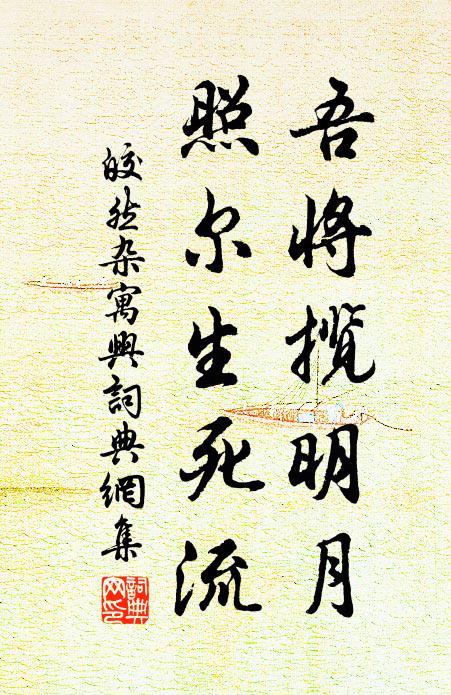 吾将揽明月
照尔生死流
皎然杂寓興詞典網集
詞典
网印